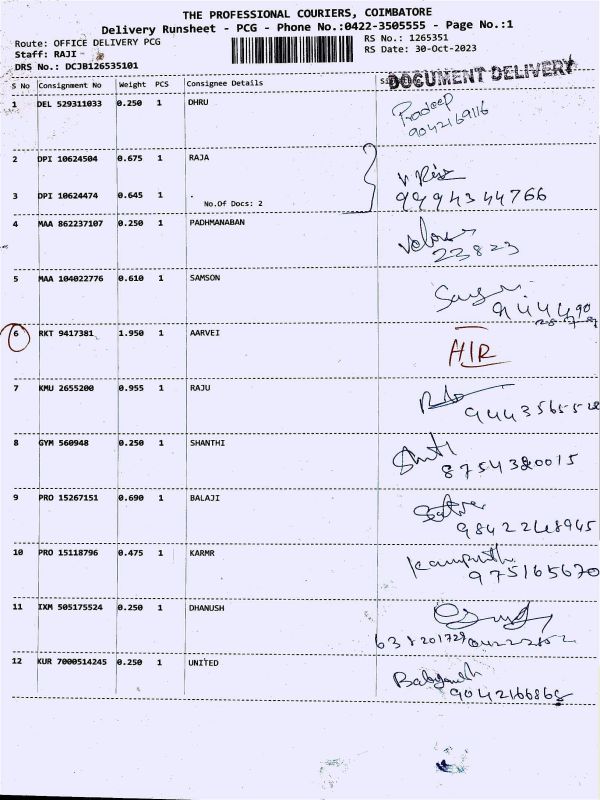 THE PROFESSIONAL COURIERS, COIMBATORE
Delivery Runsheet - PCG - Phone No.:0422-3505555 - Page No.:1
Route: OFFICE DELIVERY PCG
RS No.: 1265351
Staff: RAJI -
RS Date: 30-Oct-2023
DRS No.: DCJB126535101
DOCUMENT DELIVERY
S No Consignment No Weight PCS Consignee Details
1 DEL 529311033 0.250 1 DHRU
Pradeep
9042169116
2 DPI 10624504 0.675 1 RAJA
3 DPI 10624474 0.645 1 .
9994344766
No.Of Docs: 2
4 MAA 862237107 0.250 1 PADHMANABAN
23823
5 MAA 104022776 0.610 1 SAMSON
6 RKT 9417381 1.950 1 AARVEI
AIR
7 KMU 2655200 0.955 1 RAJU
9443565528
8 GYM 560948 0.250 1 SHANTHI
8754380015
9 PRO 15267151 0.690 1 BALAJI
9842248945
10 PRO 15118796 0.475 1 KARMR
975165670
11 IXM 505175524 0.250 1 DHANUSH
12 KUR 7000514245 0.250 1 UNITED
9042166868